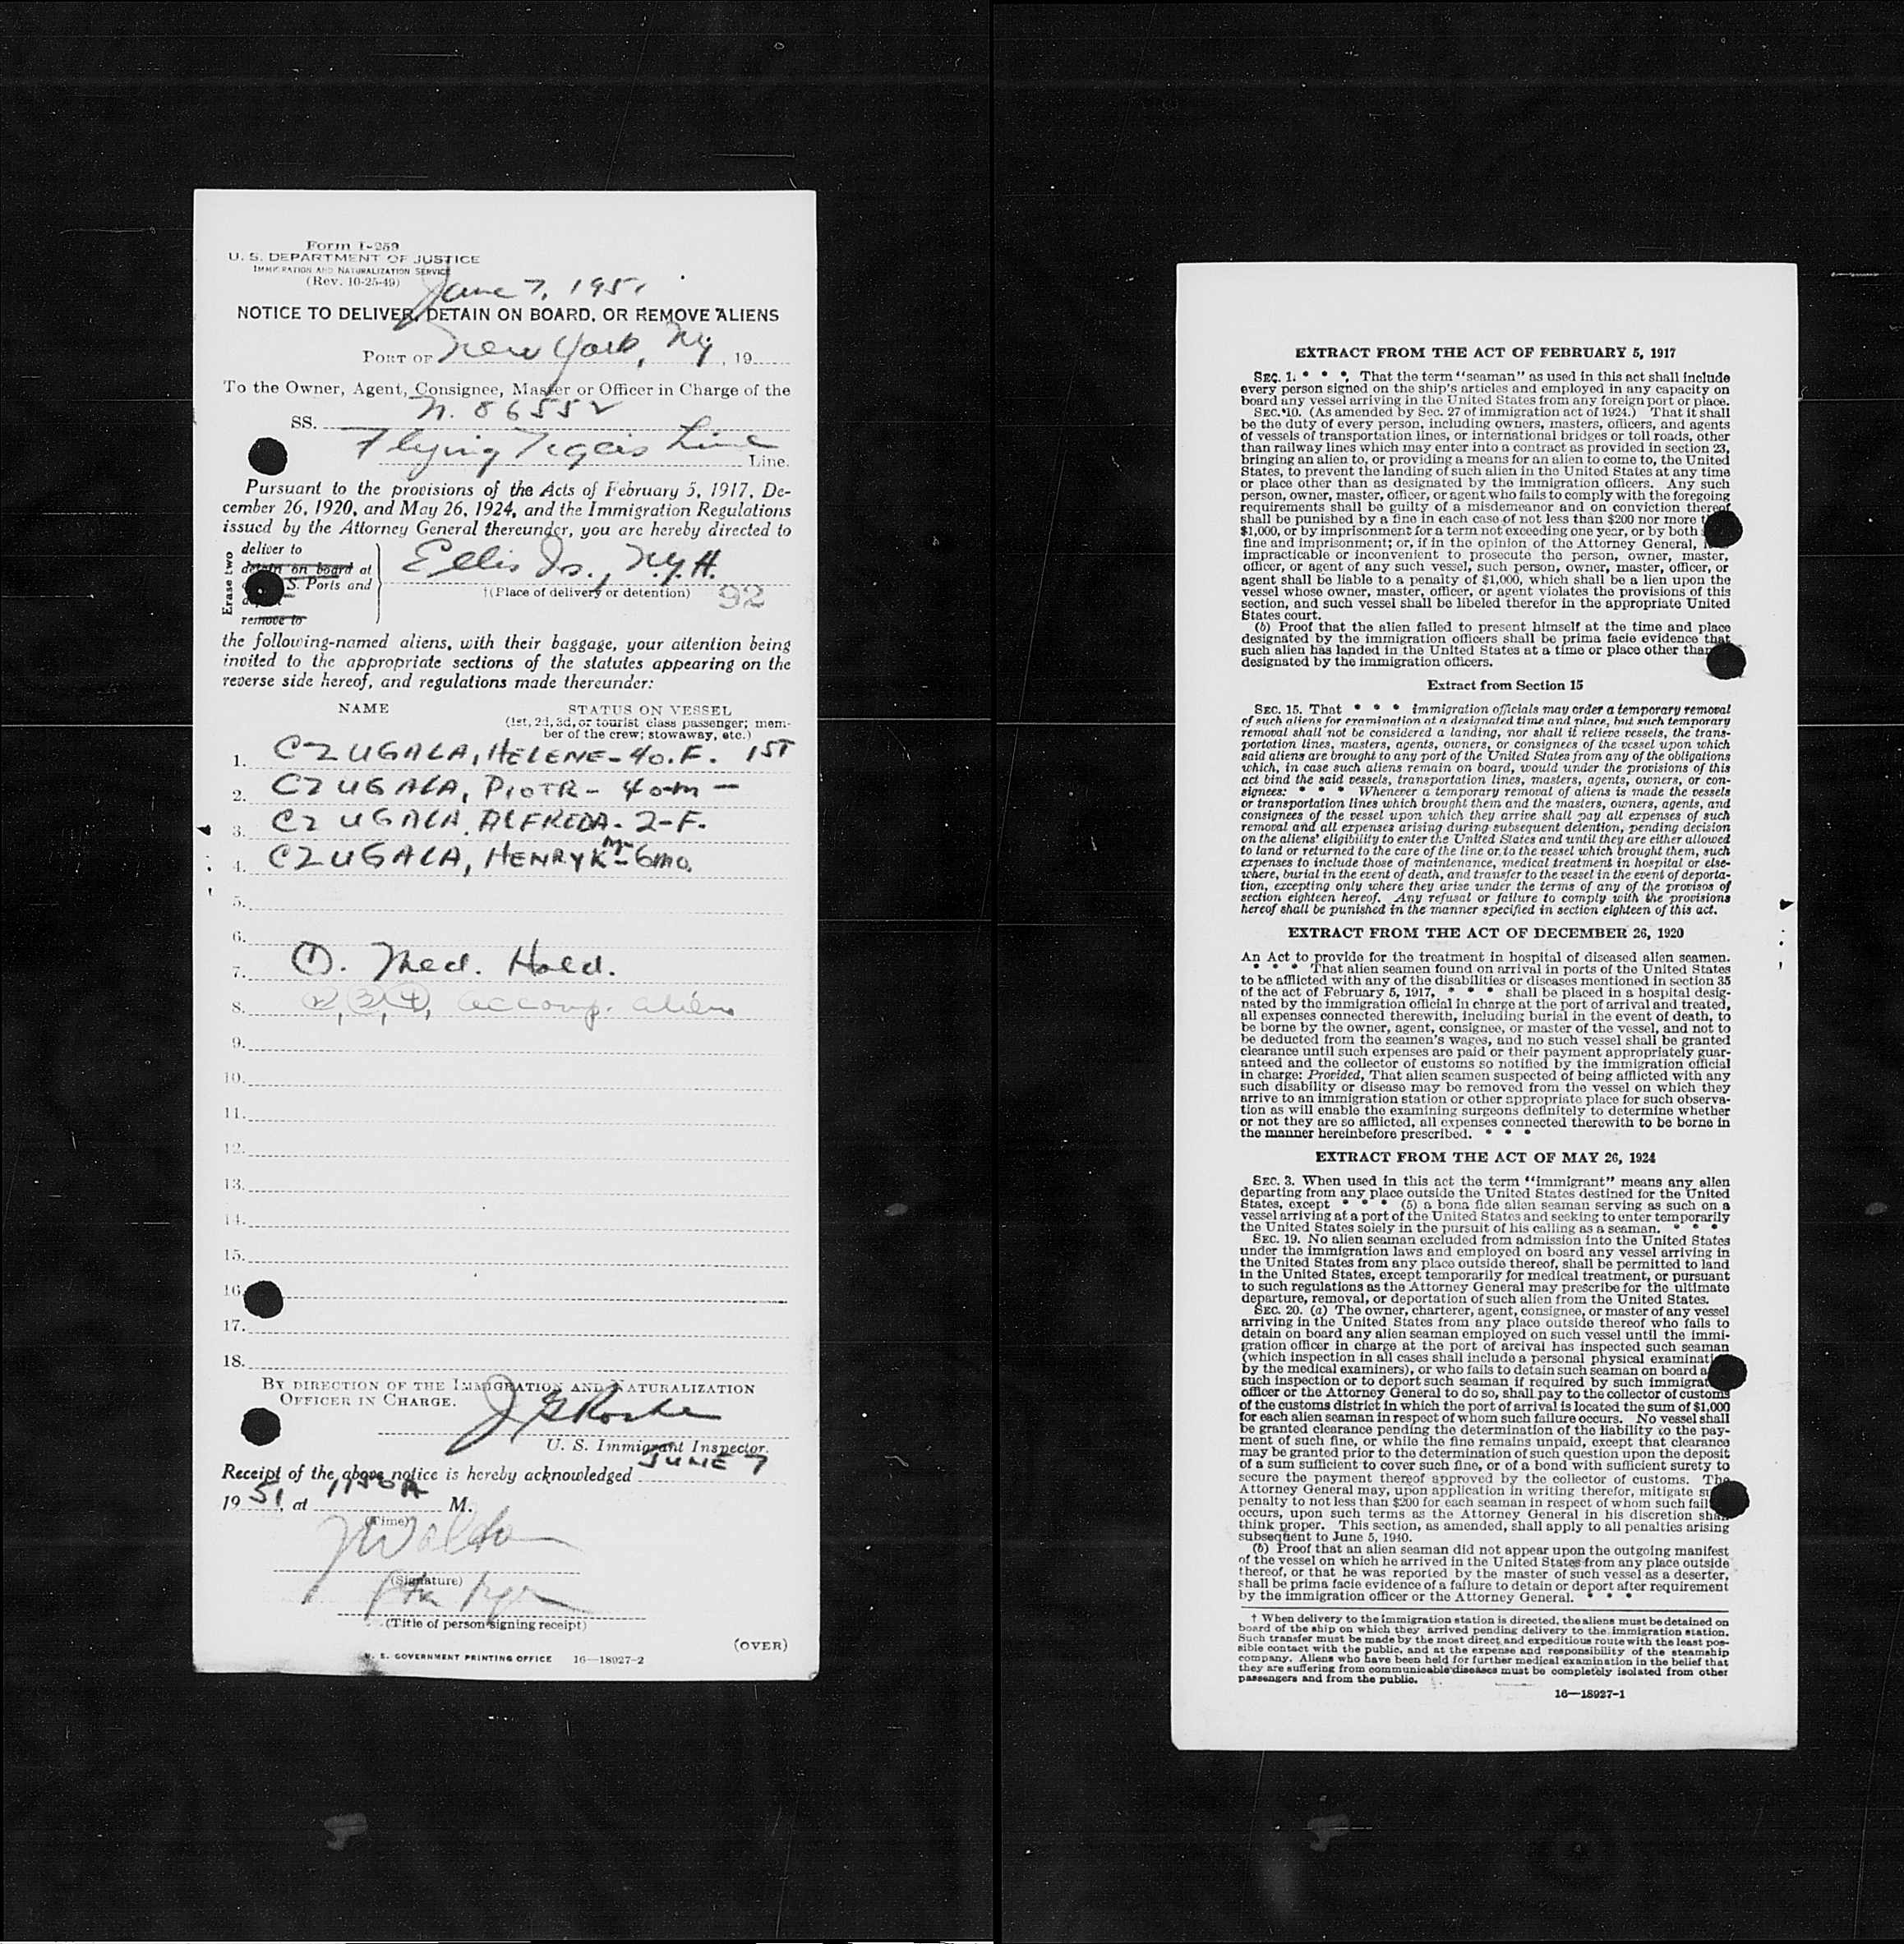 Form I-259
U. S. DEPARTMENT OF JUSTICE
IMMIGRATION AND NATURALIZATION SERVICE
(Rev. 10-25-49)
June 7, 1951
NOTICE TO DELIVER, DETAIN ON BOARD, OR REMOVE ALIENS
PORT OF New York, NY, 19
To the Owner, Agent, Consignee, Master or Officer in Charge of the
SS. N. 86552
Flying Tigers Line
Line.
Pursuant to the provisions of the Acts of February 5, 1917, De-
cember 26, 1920, and May 26, 1924, and the Immigration Regulations
issued by the Attorney General thereunder, you are hereby directed to
Erase two
deliver to
detain on board at
S. Ports and
remove to
Ellis Is., N.Y.H.
†(Place of delivery or detention) 92
the following-named aliens, with their baggage, your attention being
invited to the appropriate sections of the statutes appearing on the
reverse side hereof, and regulations made thereunder:
NAME STATUS ON VESSEL
(1st, 2d, 3d, or tourist class passenger; mem-
ber of the crew; stowaway, etc.)
1. CZUGALA, HELENE - 40. F. 1ST
2. CZUGALA, PIOTR - 40-M -
3. CZUGALA, ALFREDA - 2-F.
4. CZUGALA, HENRYK M - 6mo.
5.
6.
7. (1). Med. Hold.
8. (2), (3), (4), accomp. alien
9.
10.
11.
12.
13.
14.
15.
16.
17.
18.
BY DIRECTION OF THE IMMIGRATION AND NATURALIZATION
OFFICER IN CHARGE.
U. S. Immigrant Inspector.
Receipt of the above notice is hereby acknowledged JUNE 7
1951, at 1150A M.
(Time)
(Signature)
(Title of person signing receipt)
(OVER)
U. S. GOVERNMENT PRINTING OFFICE 16—18927-2
EXTRACT FROM THE ACT OF FEBRUARY 5, 1917
SEC. 1. * * * That the term "seaman" as used in this act shall include
every person signed on the ship's articles and employed in any capacity on
board any vessel arriving in the United States from any foreign port or place.
SEC. 10. (As amended by Sec. 27 of immigration act of 1924.) That it shall
be the duty of every person, including owners, masters, officers, and agents
of vessels of transportation lines, or international bridges or toll roads, other
than railway lines which may enter into a contract as provided in section 23,
bringing an alien to, or providing a means for an alien to come to, the United
States, to prevent the landing of such alien in the United States at any time
or place other than as designated by the immigration officers. Any such
person, owner, master, officer, or agent who fails to comply with the foregoing
requirements shall be guilty of a misdemeanor and on conviction thereof
shall be punished by a fine in each case of not less than $200 nor more
$1,000, or by imprisonment for a term not exceeding one year, or by both
fine and imprisonment; or, if in the opinion of the Attorney General,
impracticable or inconvenient to prosecute the person, owner, master,
officer, or agent of any such vessel, such person, owner, master, officer, or
agent shall be liable to a penalty of $1,000, which shall be a lien upon the
vessel whose owner, master, officer, or agent violates the provisions of this
section, and such vessel shall be libeled therefor in the appropriate United
States court.
(b) Proof that the alien failed to present himself at the time and place
designated by the immigration officers shall be prima facie evidence that
such alien has landed in the United States at a time or place other than
designated by the immigration officers.
Extract from Section 15
SEC. 15. That * * * immigration officials may order a temporary removal
of such aliens for examination at a designated time and place, but such temporary
removal shall not be considered a landing, nor shall it relieve vessels, the trans-
portation lines, masters, agents, owners, or consignees of the vessel upon which
said aliens are brought to any port of the United States from any of the obligations
which, in case such aliens remain on board, would under the provisions of this
act bind the said vessels, transportation lines, masters, agents, owners, or con-
signees: * * * Whenever a temporary removal of aliens is made the vessels
or transportation lines which brought them and the masters, owners, agents, and
consignees of the vessel upon which they arrive shall pay all expenses of such
removal and all expenses arising during subsequent detention, pending decision
on the aliens' eligibility to enter the United States and until they are either allowed
to land or returned to the care of the line or to the vessel which brought them, such
expenses to include those of maintenance, medical treatment in hospital or else-
where, burial in the event of death, and transfer to the vessel in the event of deporta-
tion, excepting only where they arise under the terms of any of the provisos of
section eighteen hereof. Any refusal or failure to comply with the provisions
hereof shall be punished in the manner specified in section eighteen of this act.
EXTRACT FROM THE ACT OF DECEMBER 26, 1920
An Act to provide for the treatment in hospital of diseased alien seamen.
* * * That alien seamen found on arrival in ports of the United States
to be afflicted with any of the disabilities or diseases mentioned in section 35
of the act of February 5, 1917, * * * shall be placed in a hospital desig-
nated by the immigration official in charge at the port of arrival and treated,
all expenses connected therewith, including burial in the event of death, to
be borne by the owner, agent, consignee, or master of the vessel, and not to
be deducted from the seamen's wages, and no such vessel shall be granted
clearance until such expenses are paid or their payment appropriately guar-
anteed and the collector of customs so notified by the immigration official
in charge: Provided, That alien seamen suspected of being afflicted with any
such disability or disease may be removed from the vessel on which they
arrive to an immigration station or other appropriate place for such observa-
tion as will enable the examining surgeons definitely to determine whether
or not they are so afflicted, all expenses connected therewith to be borne in
the manner hereinbefore prescribed. * * *
EXTRACT FROM THE ACT OF MAY 26, 1924
SEC. 3. When used in this act the term "immigrant" means any alien
departing from any place outside the United States destined for the United
States, except * * * (5) a bona fide alien seaman serving as such on a
vessel arriving at a port of the United States and seeking to enter temporarily
the United States solely in the pursuit of his calling as a seaman. * * *
SEC. 19. No alien seaman excluded from admission into the United States
under the immigration laws and employed on board any vessel arriving in
the United States from any place outside thereof, shall be permitted to land
in the United States, except temporarily for medical treatment, or pursuant
to such regulations as the Attorney General may prescribe for the ultimate
departure, removal, or deportation of such alien from the United States.
SEC. 20. (a) The owner, charterer, agent, consignee, or master of any vessel
arriving in the United States from any place outside thereof who fails to
detain on board any alien seaman employed on such vessel until the immi-
gration officer in charge at the port of arrival has inspected such seaman
(which inspection in all cases shall include a personal physical examinati
by the medical examiners), or who fails to detain such seaman on board a
such inspection or to deport such seaman if required by such immigrat
officer or the Attorney General to do so, shall pay to the collector of customs
of the customs district in which the port of arrival is located the sum of $1,000
for each alien seaman in respect of whom such failure occurs. No vessel shall
be granted clearance pending the determination of the liability to the pay-
ment of such fine, or while the fine remains unpaid, except that clearance
may be granted prior to the determination of such question upon the deposit
of a sum sufficient to cover such fine, or of a bond with sufficient surety to
secure the payment thereof approved by the collector of customs. The
Attorney General may, upon application in writing therefor, mitigate su
penalty to not less than $200 for each seaman in respect of whom such fail
occurs, upon such terms as the Attorney General in his discretion shall
think proper. This section, as amended, shall apply to all penalties arising
subsequent to June 5, 1940.
(b) Proof that an alien seaman did not appear upon the outgoing manifest
of the vessel on which he arrived in the United States from any place outside
thereof, or that he was reported by the master of such vessel as a deserter,
shall be prima facie evidence of a failure to detain or deport after requirement
by the immigration officer or the Attorney General. * * *
† When delivery to the immigration station is directed, the aliens must be detained on
board of the ship on which they arrived pending delivery to the immigration station.
Such transfer must be made by the most direct and expeditious route with the least pos-
sible contact with the public, and at the expense and responsibility of the steamship
company. Aliens who have been held for further medical examination in the belief that
they are suffering from communicable diseases must be completely isolated from other
passengers and from the public.
16—18927-1